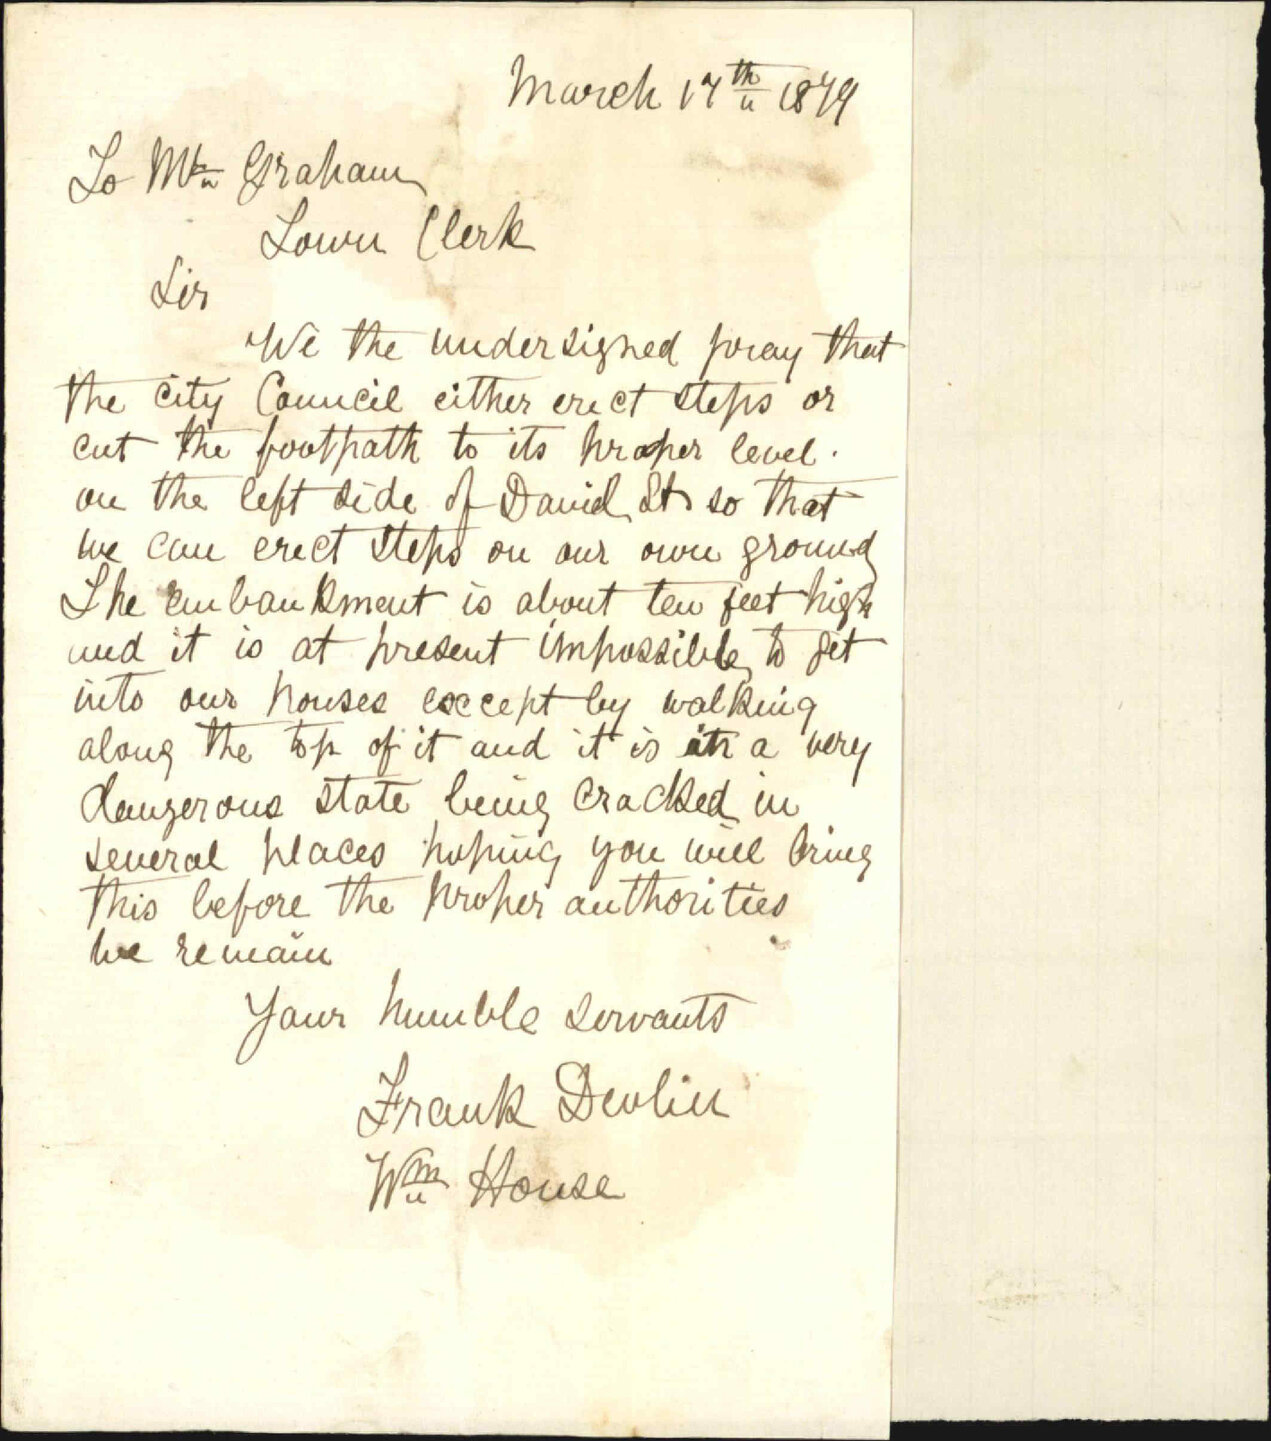 March 17th 1879
To Mr Graham
Town Clerk
Sir
We the undersigned pray that
the city Council either erect steps or
cut the footpath to its proper level.
on the left side of David St. so that
we can erect steps on our own ground
The Embankment is about ten feet high
and it is at present impossible to get
into our houses except by walking
along the top of it and it is in a very
dangerous state being cracked in
several places hoping you will bring
this before the proper authorities
We remain
Your humble servants
Frank Devlin
Wm House